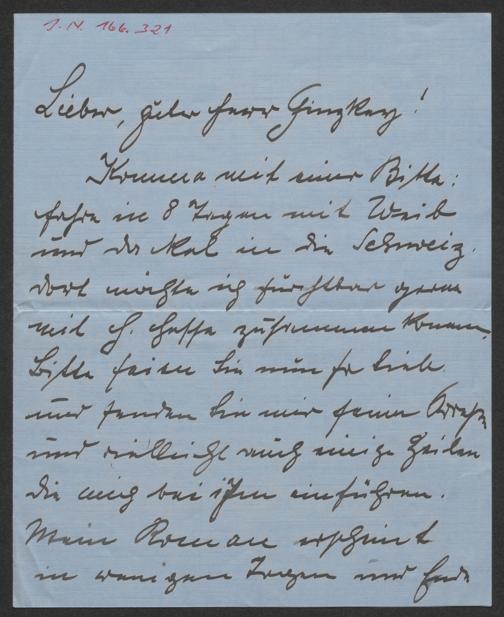 J.N. 166.321
Lieber, guter Herr Ginzkey!
Komme mit einer Bitte:
fahre in 8 Tagen mit Weib
und in die Schweiz.
Dort möchte ich furchtbar gerne
mit H. Hesse zusammen kommen.
Bitte seien Sie nun so lieb
und senden Sie mir seine
und vielleicht auch einige Zeilen
die mich bei ihm einführen.
Mein Roman erscheint
in wenigen Tagen und Ende